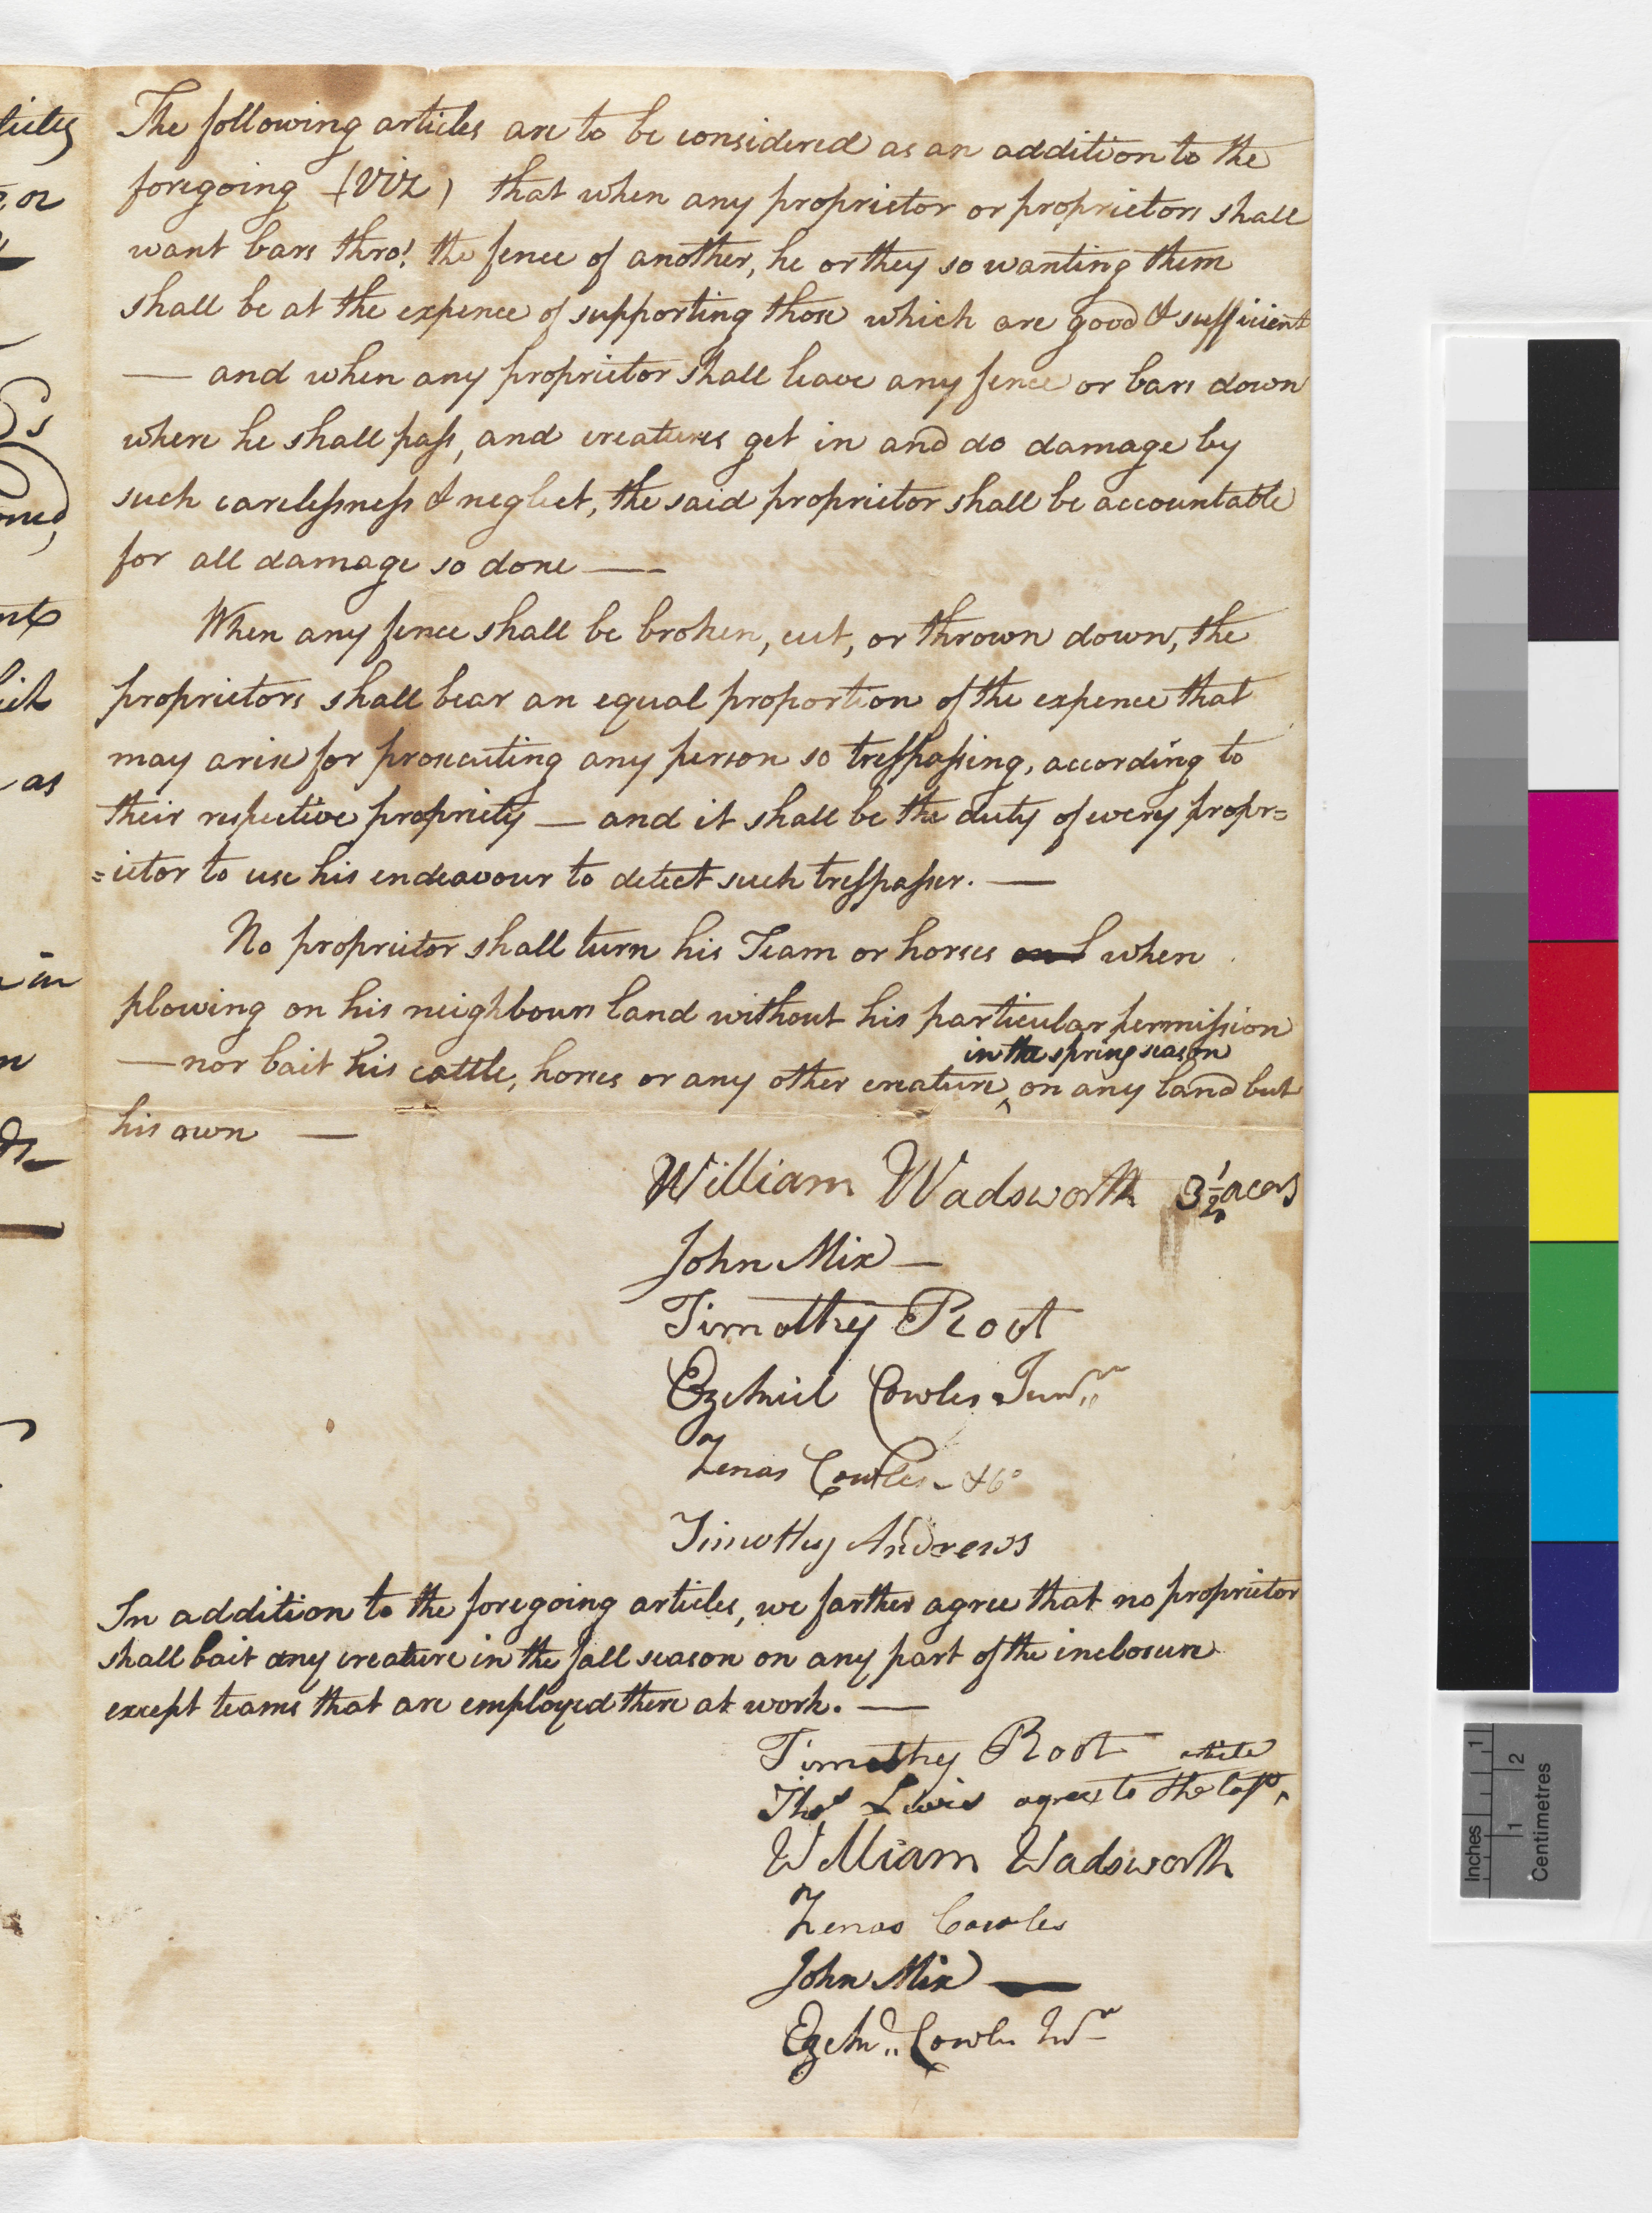 The following articles are to be considered as an addition to the
foregoing (Viz) that when any proprietor or proprietors shall
want bars thro' the fence of another, he or they so wanting them
shall be at the expence of supporting those which are good & sufficient
— and when any proprietor shall leave any fence or bars down
where he shall pass, and creatures get in and do damage by
such carelessness & neglect, the said proprietor shall be accountable
for all damage so done —
When any fence shall be broken, cut, or thrown down, the
proprietors shall bear an equal proportion of the expence that
may arise for prosecuting any person so tresspassing, according to
their respective propriety — and it shall be the duty of every propr=
=ietor to use his endeavour to detect such tresspasser. —
No proprietor shall turn his Team or horses when
plowing on his neighbours land without his particular permission
in the spring season
— nor bait his cattle, horses or any other creature ‸ on any land but
his own —
William Wadsworth 3 1/2 acers
John Mix —
Timothy Root
Ezekiel Cowles Junr
Zenas Cowles & Co
Timothy Andrews
In addition to the foregoing articles, we farther agree that no proprietor
shall bait any creature in the fall season on any part of the inclosure
except teams that are employed there at work. —
Timothy Root
article
Thos Lewis agrees to the last ‸
William Wadsworth
Zenas Cowles
John Mix —
Ezekl Cowles Jur
ticles
or
as
in
Inches 1
Centimetres 1 2